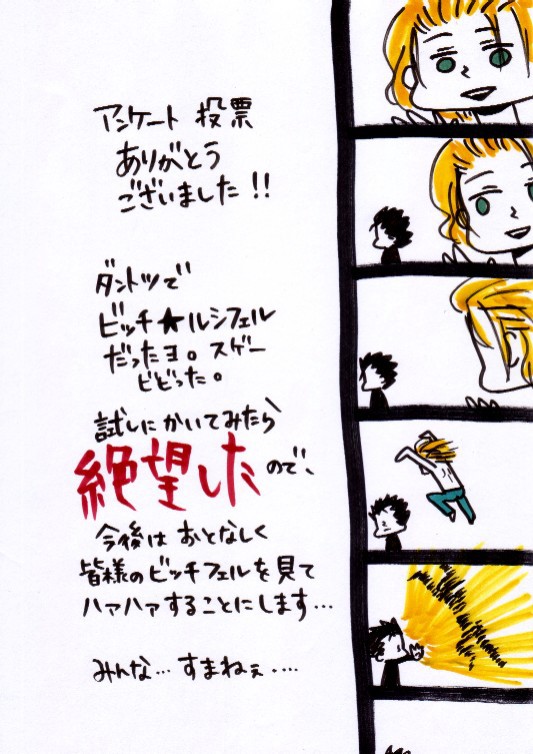 アンケート 投票
ありがとう
ございました!!
ダントツで
ビッチ★ルシフェル
だったヨ。スゲー
ビビった。
試しにかいてみたら
絶望したので、
今後は おとなしく
皆様のビッチフェルを見て
ハァハァすることにします…
みんな… すまねぇ‥‥